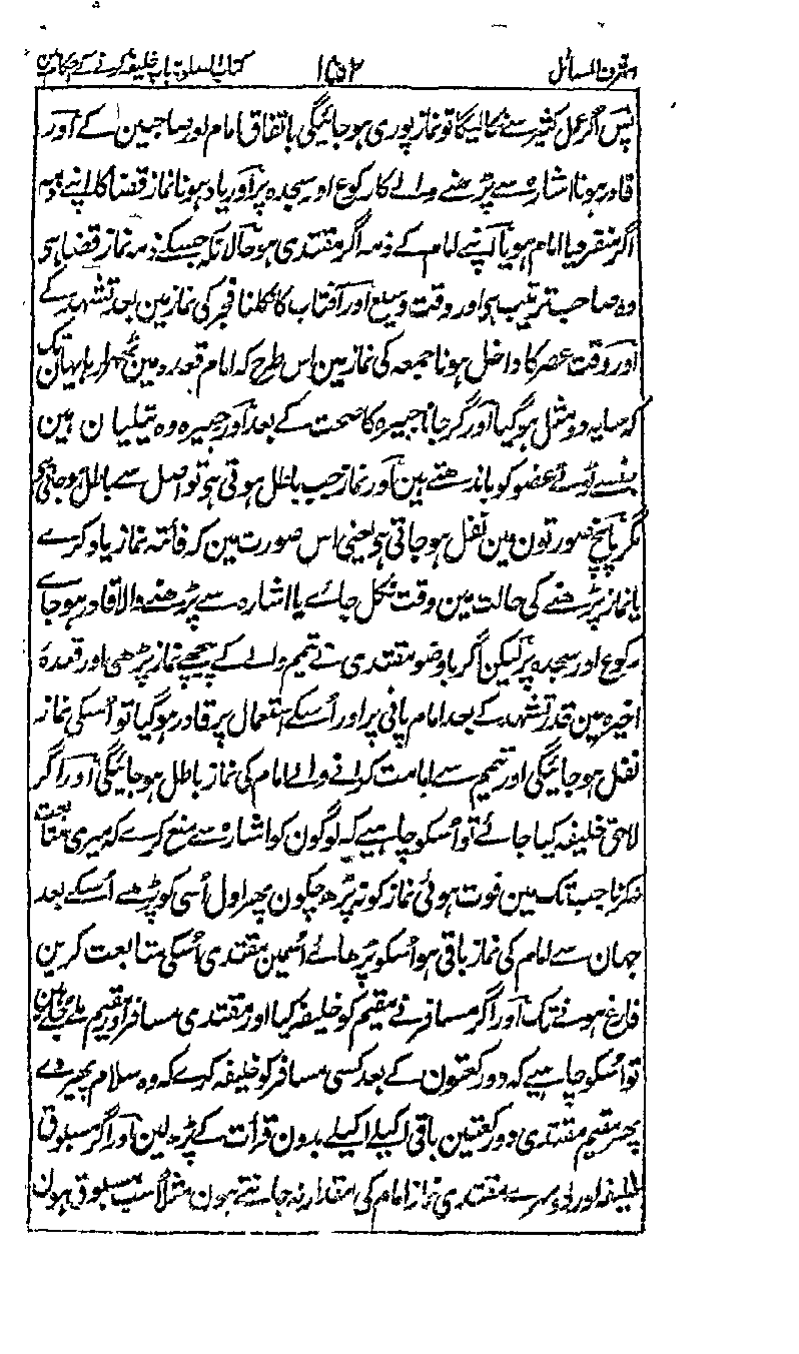 اشرف المسائل ۱۵۲ کتاب الصلوة باب خلیفہ کرنے کے احکام مین
پس اگر عمل کثیر سے نکالیگا تو نماز پوری ہوجائیگی باتفاق امام اور صاحبین کے اور
قادر ہونا اشارہ سے پڑھنے والے کا رکوع اور سجدہ پر اور یاد ہونا نماز قضا کا اپنے ذمہ
اگر منفرد یا امام ہو یا اپنے امام کے ذمہ اگر مقتدی ہو حالانکہ جسکے ذمہ نماز قضا ہو
وہ صاحب ترتیب ہو اور وقت وسیع اور آفتاب کا نکلنا فجر کی نماز مین بعد تشہد کے
اور وقت عصر کا داخل ہونا جمعہ کی نماز مین اس طرح کہ امام قعدہ مین ٹھہرا رہا یہان تک
کہ سایہ دو مثل ہوگیا اور گر جانا جبیرہ کا صحت کے بعد اور جبیرہ وہ تیلیان ہین
جنسے ٹوٹے عضو کو باندھتے ہین اور نماز جب باطل ہوتی ہو تو اصل سے باطل ہوجاتی ہے
مگر پانچ صورتون مین نفل ہوجاتی ہو یعنی اس صورت مین کہ فائتہ نماز یاد کرے
یا نماز پڑھنے کی حالت مین وقت نکل جائے یا اشارہ سے پڑھنے والا قادر ہوجاے
رکوع اور سجدہ پر لیکن اگر باوضو مقتدی نے تیمم والے کے پیچھے نماز پڑھی اور قعدۂ
اخیرہ مین قدر تشہد کے بعد امام پانی پر اور اُسکے استعمال پر قادر ہوگیا تو اُسکی نماز
نفل ہوجائیگی اور تیمم سے امامت کرانے والے امام کی نماز باطل ہوجائیگی اور اگر
لاحق خلیفہ کیا جائے تو اُسکو چاہیے کہ لوگون کو اشارہ سے منع کرے کہ میری متابعت
نکرنا جب تک مین فوت ہوئی نماز کو نہ پڑھ چکون پھر اول اُسی کو پڑھے اُسکے بعد
جہان سے امام کی نماز باقی ہو اُسکو پڑھائے اُسمین مقتدی اُسکی متابعت کرین
فارغ ہونے تک اور اگر مسافر نے مقیم کو خلیفہ کیا اور مقتدی مسافر اور مقیم ملے جلے ہین
تو اُسکو چاہیے کہ دو رکعتون کے بعد کسی مسافر کو خلیفہ کرے کہ وہ سلام پھیر دے
پھر مقیم مقتدی دو رکعتین باقی اکیلے اکیلے بدون قرأت کے پڑھ لین اور اگر مسبوق
خلیفہ اور دوسرے مقتدی نماز امام کی مقدار نہ جانتے ہون مثلاً سب مسبوق ہون